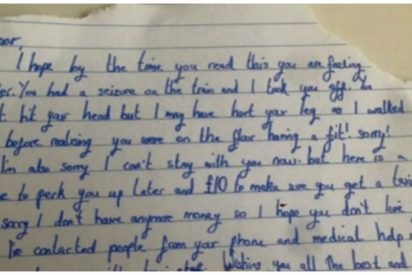 I hope by the time you read this you are feeling
You had a seizure on the train and I took you off.
hit your head but I may have hurt your leg as I walked
before realising you were on the floor having a fit! Sorry!
also sorry I can't stay with you now. but here is a
to perk you up later and £10 to make sure you get a
sorry I don't have anymore money so I hope you don't live
I've contacted people from your phone and medical help
Wishing you all the best and